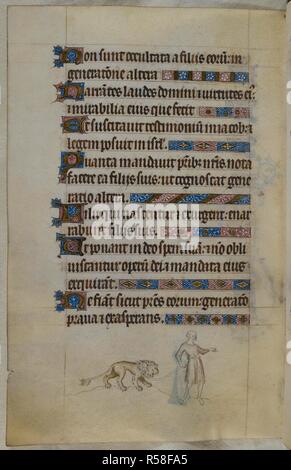 Non sunt occultata a filiis eorum: in
generatione altera
Narrantes laudes domini et virtutes ei:
mirabilia eius que fecit
Et suscitavit testimonium in iacob: et
legem posuit in isrl
Quanta mandavit pribus nris nota
facere ea filiis suis: ut cognoscat gene
ratio altera
Filii qui nascentur et exurgent: enar
rabunt filiis suis
Ut ponant in deo spem suam: et non obli
viscantur operum dei et mandata eius
exquirant
Ne fiant sicut pres eorum: generatio
prava et exasperans
alamy
Image ID: R58FA5
www.alamy.com